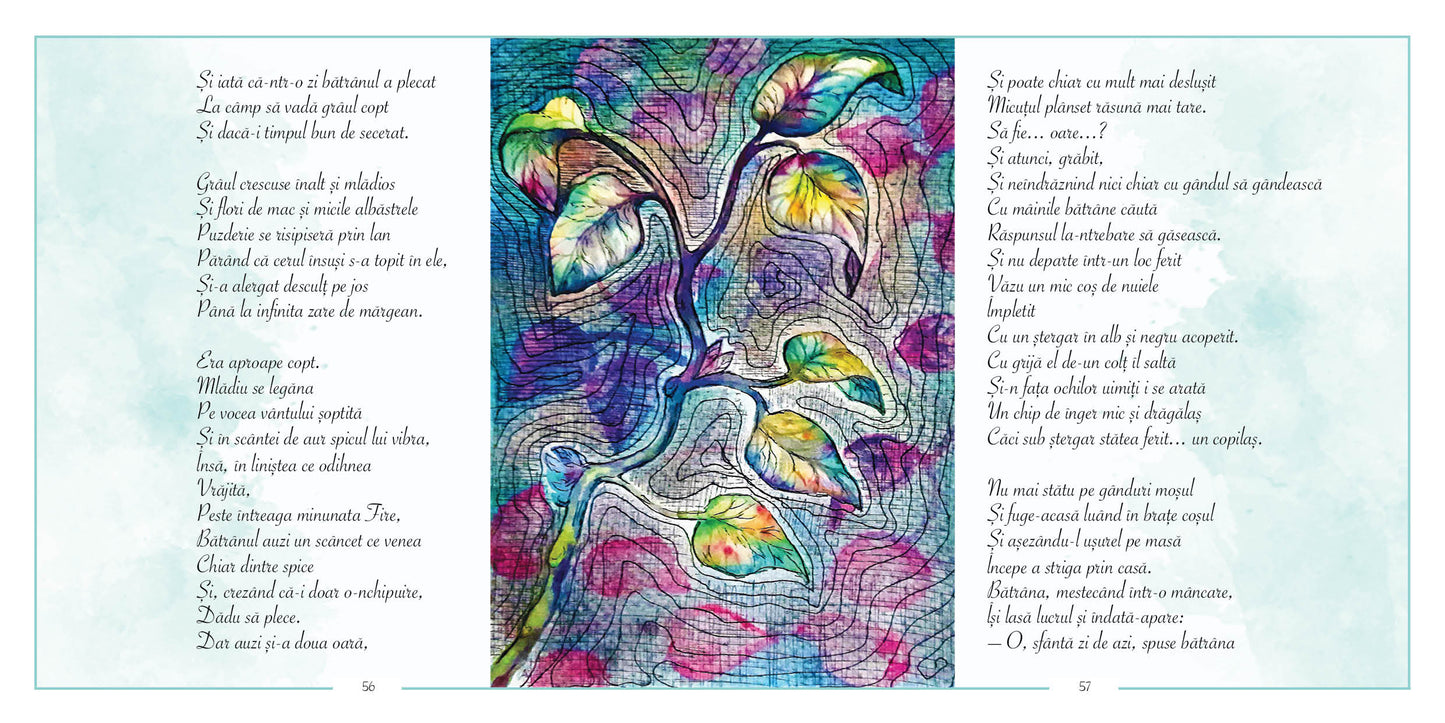 Și iată că-ntr-o zi bătrânul a plecat
La câmp să vadă grâul copt
Și dacă-i timpul bun de secerat.
Grâul crescuse înalt și mlădios
Și flori de mac și micile albăstrele
Puzderie se risipiseră prin lan
Părând că cerul însuși s-a topit în ele,
Și-a alergat desculț pe jos
Până la infinita zare de mărgean.
Era aproape copt.
Mlădiu se legăna
Pe vocea vântului șoptită
Și în scântei de aur spicul lui vibra,
Însă, în liniștea ce odihnea
Vrăjită,
Peste întreaga minunata Fire,
Bătrânul auzi un scâncet ce venea
Chiar dintre spice
Și, crezând că-i doar o-nchipuire,
Dădu să plece.
Dar auzi și-a doua oară,
56
Și poate chiar cu mult mai deslușit
Micuțul plânset răsună mai tare.
Să fie... oare...?
Și atunci, grăbit,
Și neîndrăznind nici chiar cu gândul să gândească
Cu mâinile bătrâne căută
Răspunsul la-ntrebare să găsească.
Și nu departe într-un loc ferit
Văzu un mic coș de nuiele
Împletit
Cu un ștergar în alb și negru acoperit.
Cu grijă el de-un colț îl saltă
Și-n fața ochilor uimiți i se arată
Un chip de înger mic și drăgălaș
Căci sub ștergar stătea ferit... un copilaș.
Nu mai stătu pe gânduri moșul
Și fuge-acasă luând în brațe coșul
Și așezându-l ușurel pe masă
Începe a striga prin casă.
Bătrâna, mestecând într-o mâncare,
Își lasă lucrul și îndată-apare:
– O, sfântă zi de azi, spuse bătrâna
57